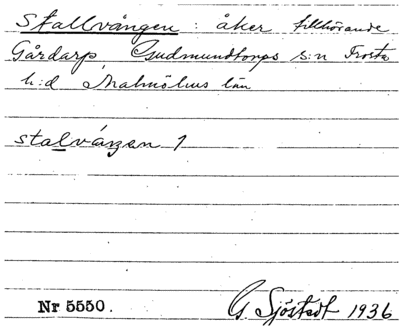 Stallvången : åker tillhörande
Gårdarp, Gudmundtorps s:n Frosta
h:d Malmöhus län
stalvåŋen 1
Nr 5550.
G. Sjöstedt 1936